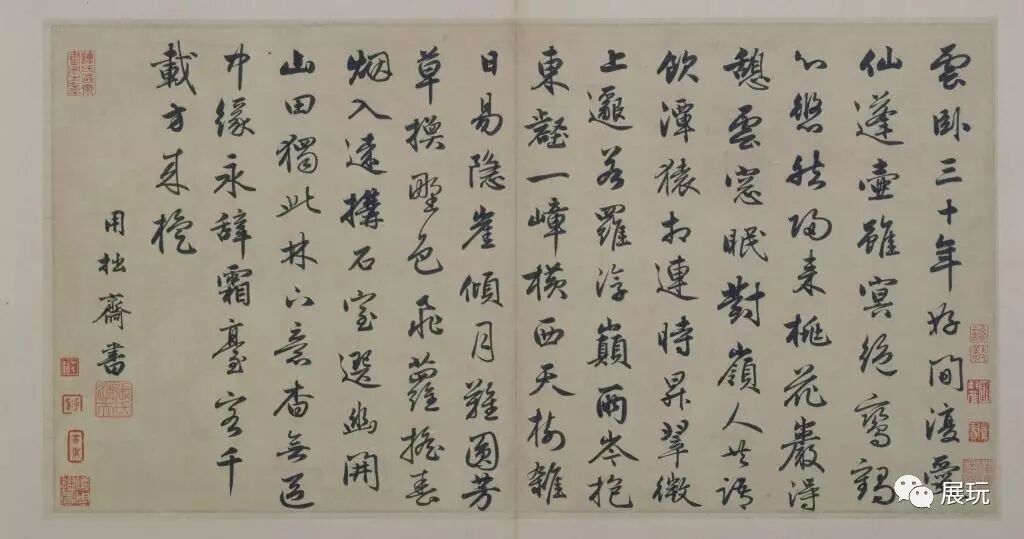 雲臥三十年好閒復愛
仙蓬壺雖冥絕鸞鶴
心悠然歸來桃花巖得
憩雲窓眠對嶺人共語
飲潭猿相連時昇翠微
上邈若羅浮巔兩岑抱
東壑一嶂橫西天樹雜
日易隱崖傾月難圓芳
草換野色飛蘿搖春
烟入遠搆石室選幽開
山田獨此林下意杳無區
中緣永辭霜臺客千
載方來旋
用拙齋書
展玩